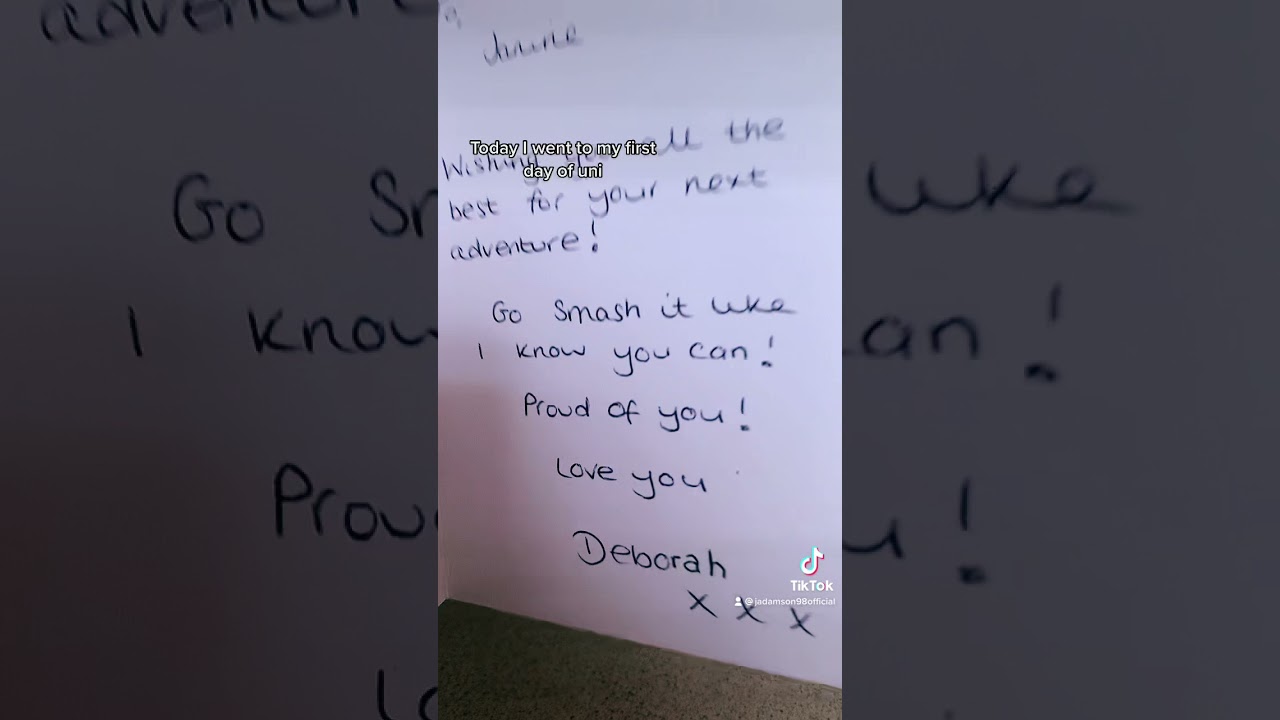 Wishing you all the
best for your next
adventure!
Go Smash it like
I know you can!
Proud of you!
Love you
Deborah
x x x
Today I went to my first
day of uni
TikTok
@jadamson98official